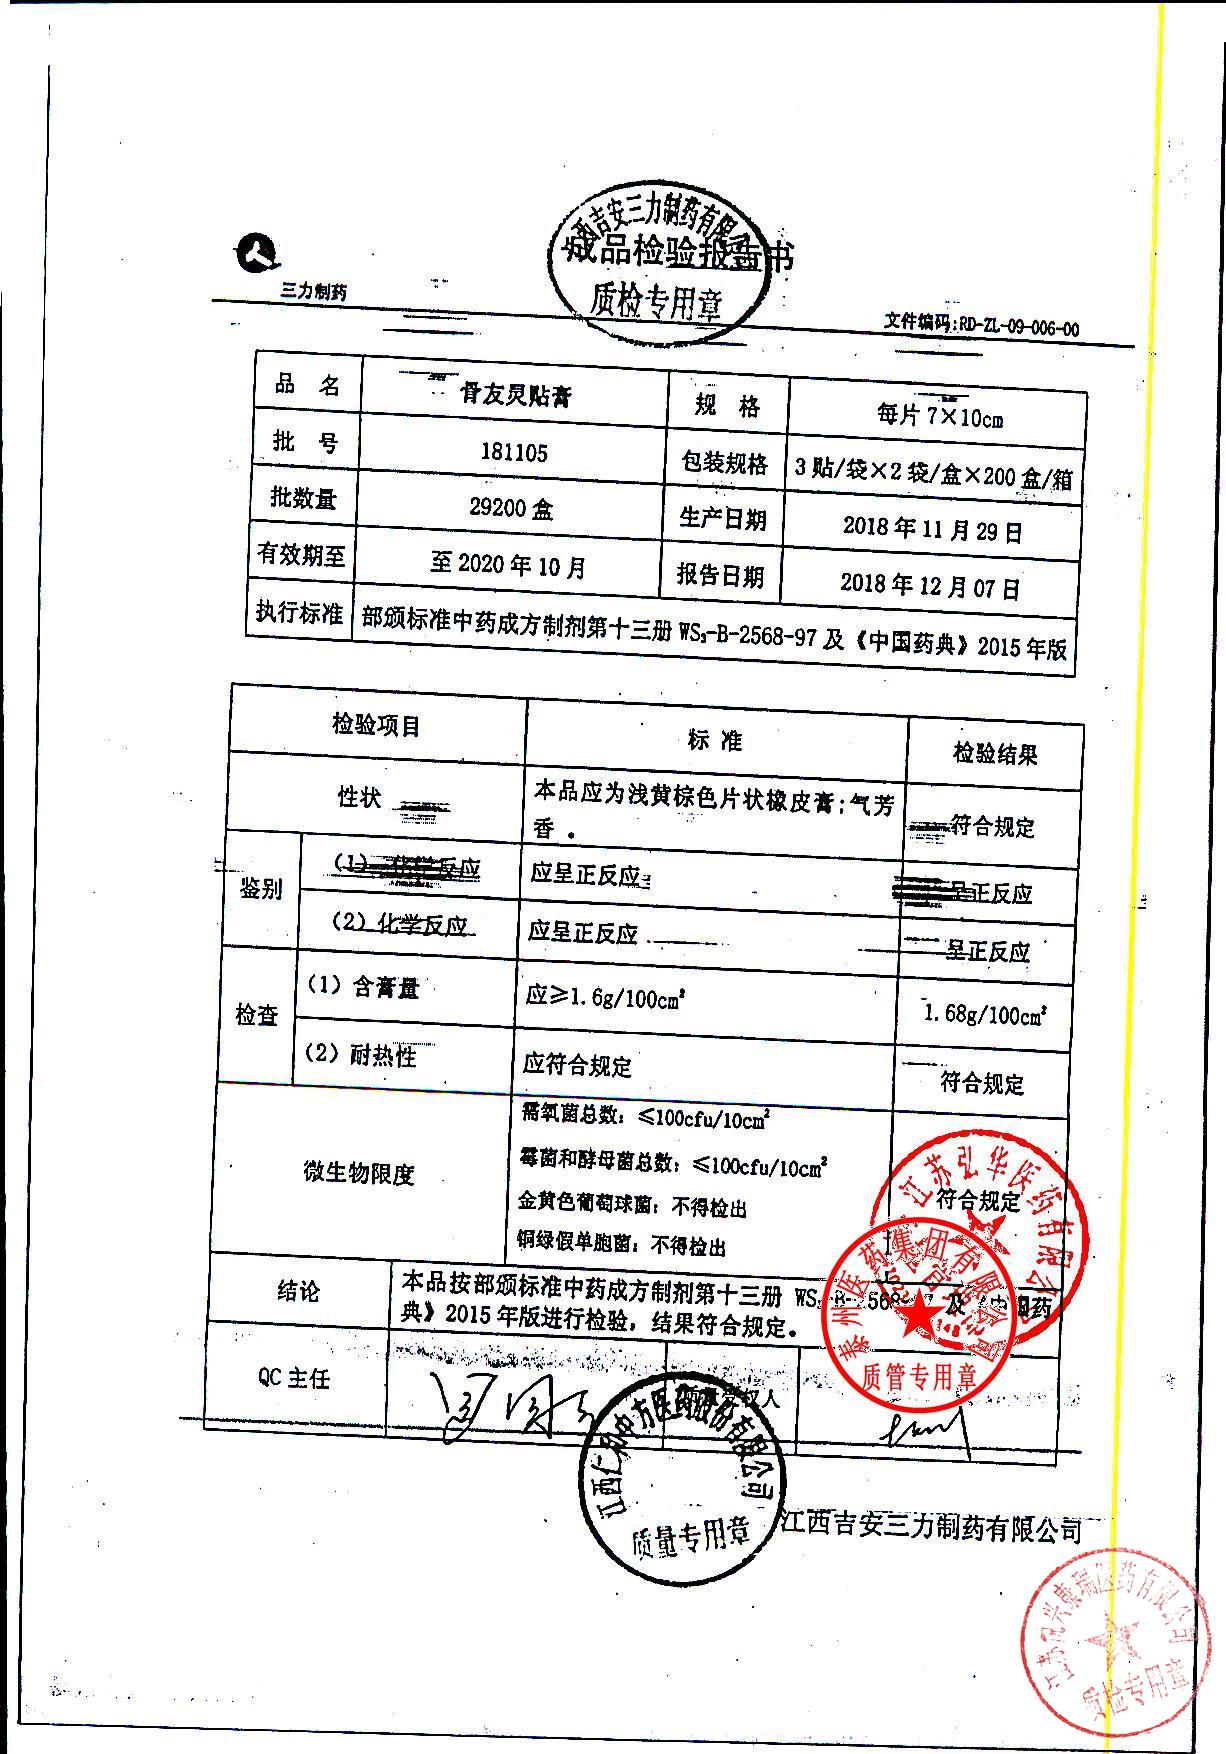 成品检验报告书
江西吉安三力制药有限公司
质检专用章
三力制药
文件编码:RD-ZL-09-006-00
品 名 骨友灵贴膏 规 格 每片 7×10cm
批 号 181105 包装规格 3 贴/袋×2 袋/盒×200 盒/箱
批数量 29200 盒 生产日期 2018 年 11 月 29 日
有效期至 至 2020 年 10 月 报告日期 2018 年 12 月 07 日
执行标准 部颁标准中药成方制剂第十三册 WS₃-B-2568-97 及《中国药典》2015 年版
检验项目 标 准 检验结果
性状 本品应为浅黄棕色片状橡皮膏;气芳
香。 符合规定
鉴别 (1) 化学反应 应呈正反应 呈正反应
(2) 化学反应 应呈正反应 呈正反应
检查 (1) 含膏量 应≥1.6g/100cm² 1.68g/100cm²
(2) 耐热性 应符合规定 符合规定
微生物限度 需氧菌总数: ≤100cfu/10cm²
霉菌和酵母菌总数: ≤100cfu/10cm²
金黄色葡萄球菌: 不得检出
铜绿假单胞菌: 不得检出
符合规定
结论 本品按部颁标准中药成方制剂第十三册 WS₃-B-2568-97 及《中国药
典》2015 年版进行检验, 结果符合规定。
QC 主任
江苏弘华医药有限公司
泰州医药集团有限公司
质管专用章
江西仁和中方医药股份有限公司
质量专用章
江西吉安三力制药有限公司
质检专用章